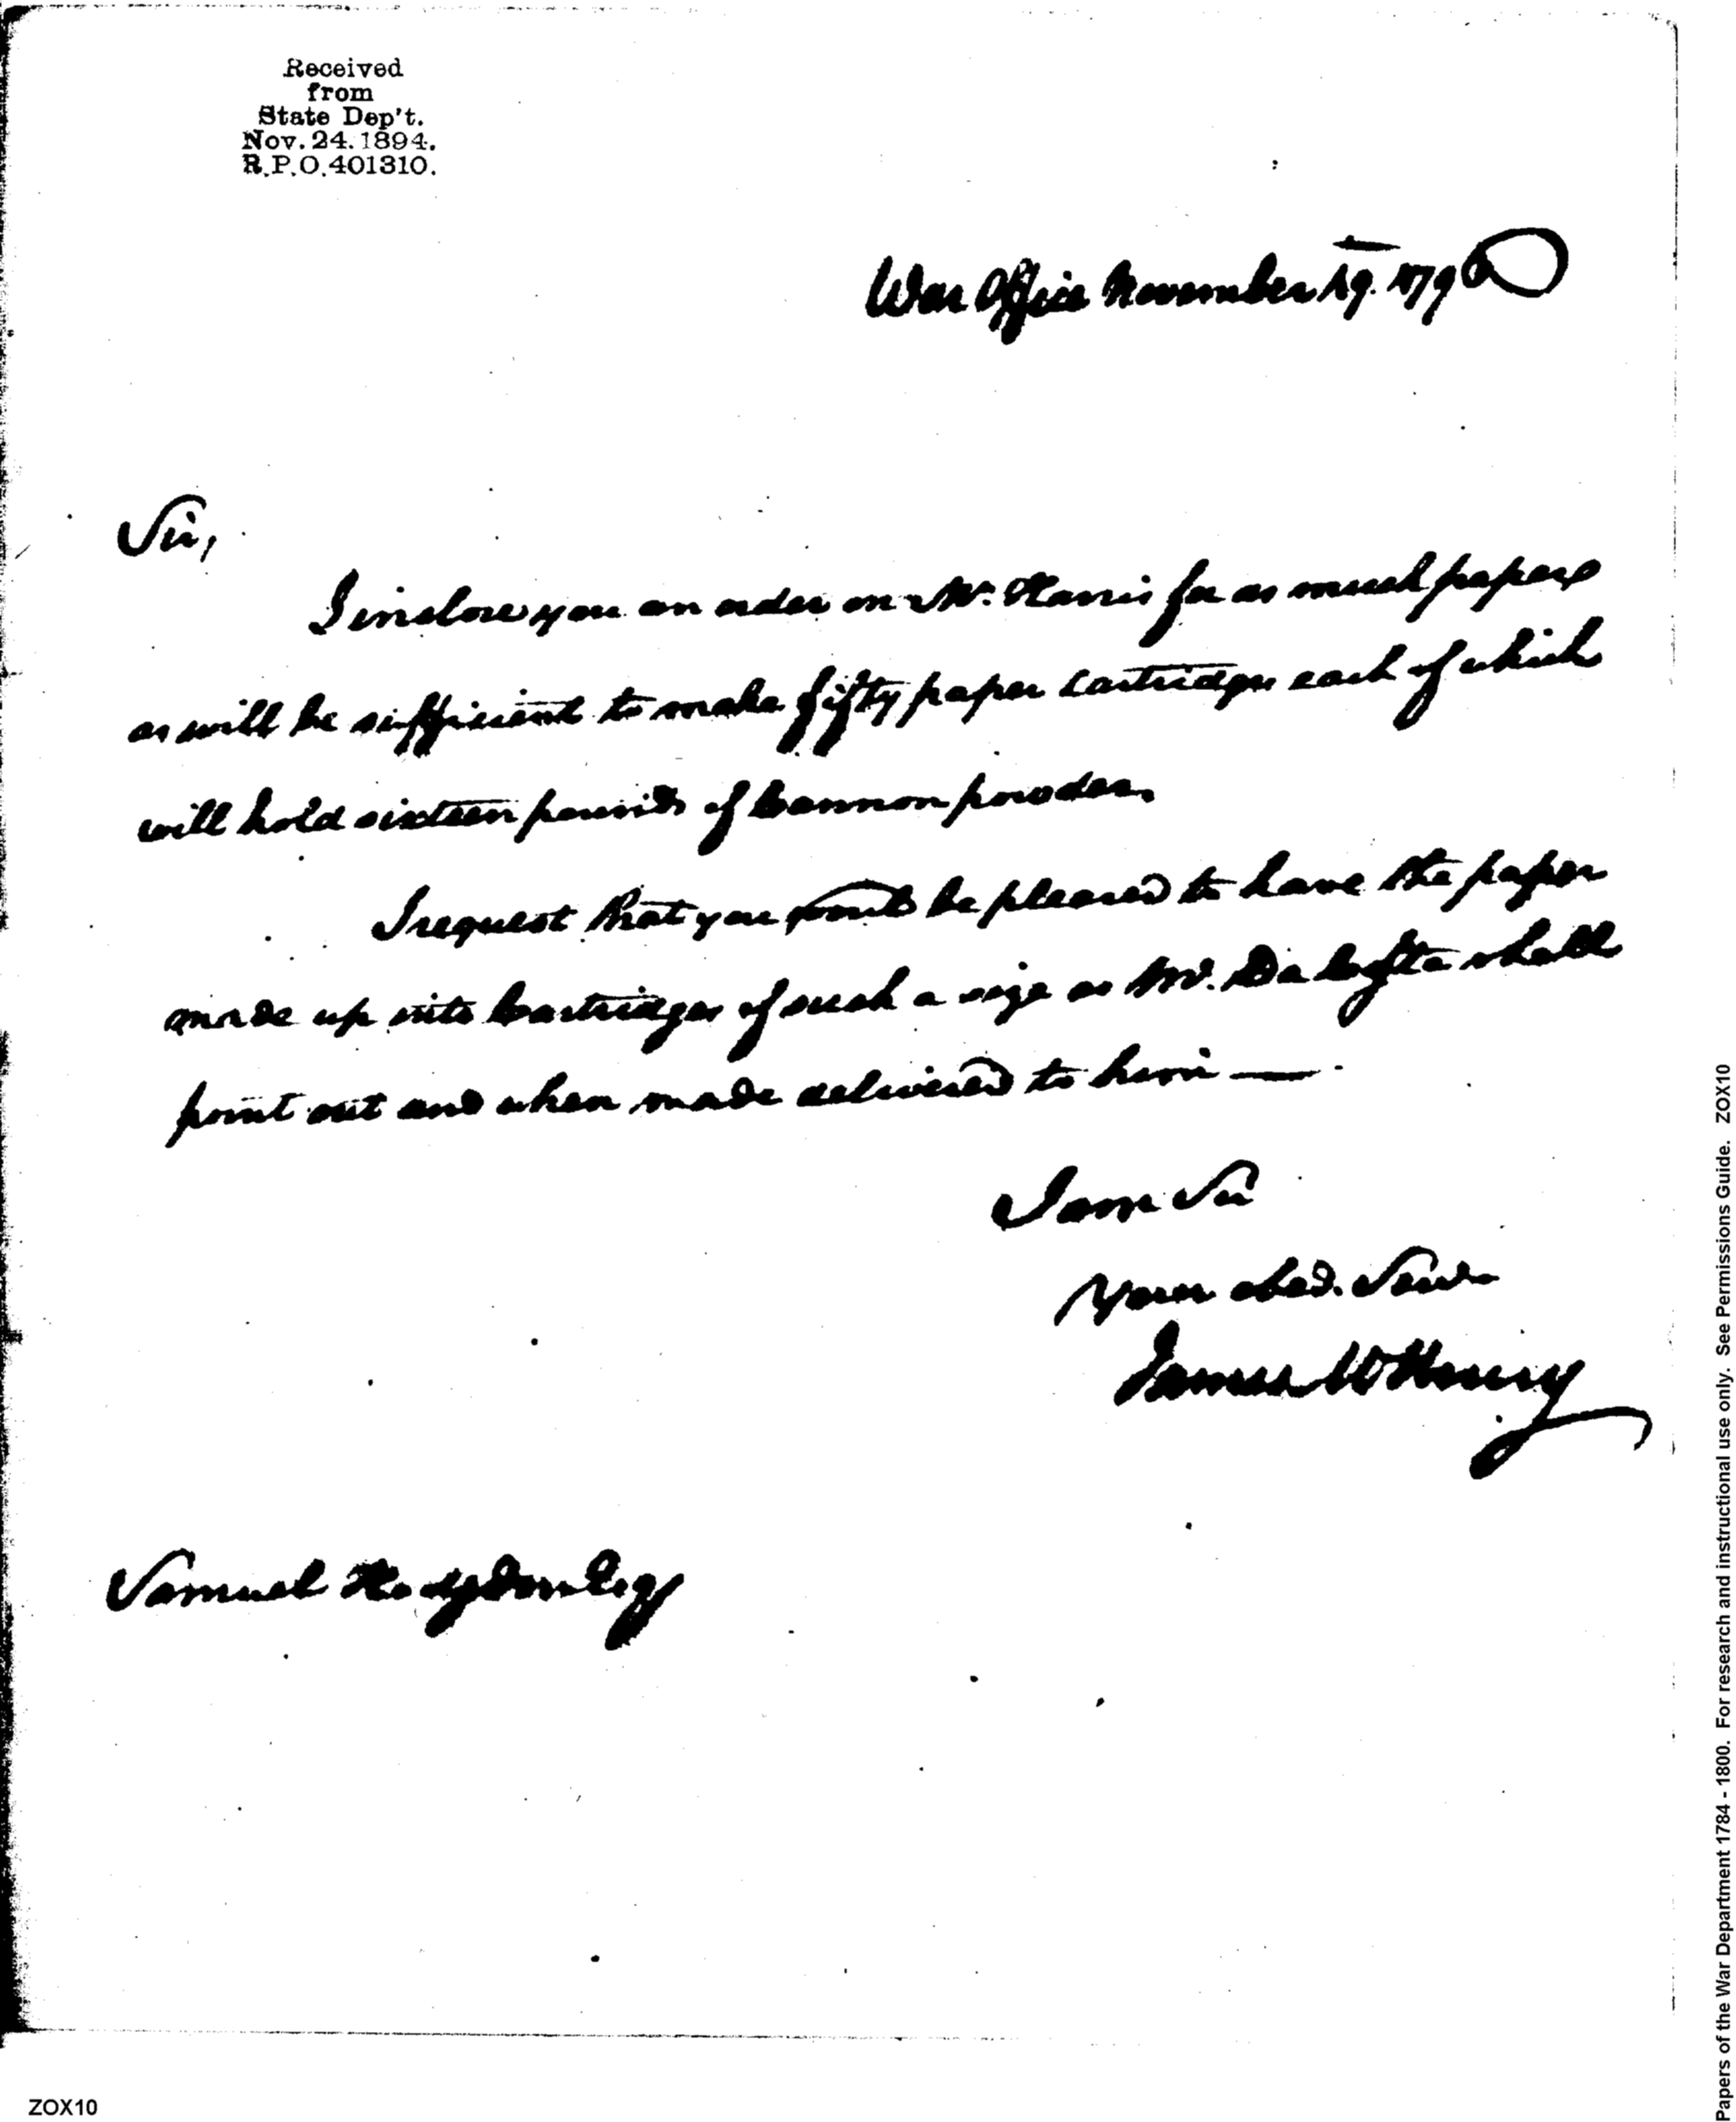 Received
from
State Dep't.
Nov. 24. 1894.
R.P.O. 401310.
War Office November 19. 1796
Sir,
I inclose you an order on Mr. Harris for as much paper
as will be sufficient to make fifty paper cartridges each of which
will hold sixteen pounds of Cannon powder.
I request that you would be pleased to have the paper
made up into Cartridges of such a size as Mr. shall
point out and when made delivered to him —
I am Sir
Your obed. Servt
James McHenry
Samuel Hodgdon Esqr
ZOX10
Papers of the War Department 1784 - 1800. For research and instructional use only. See Permissions Guide. ZOX10